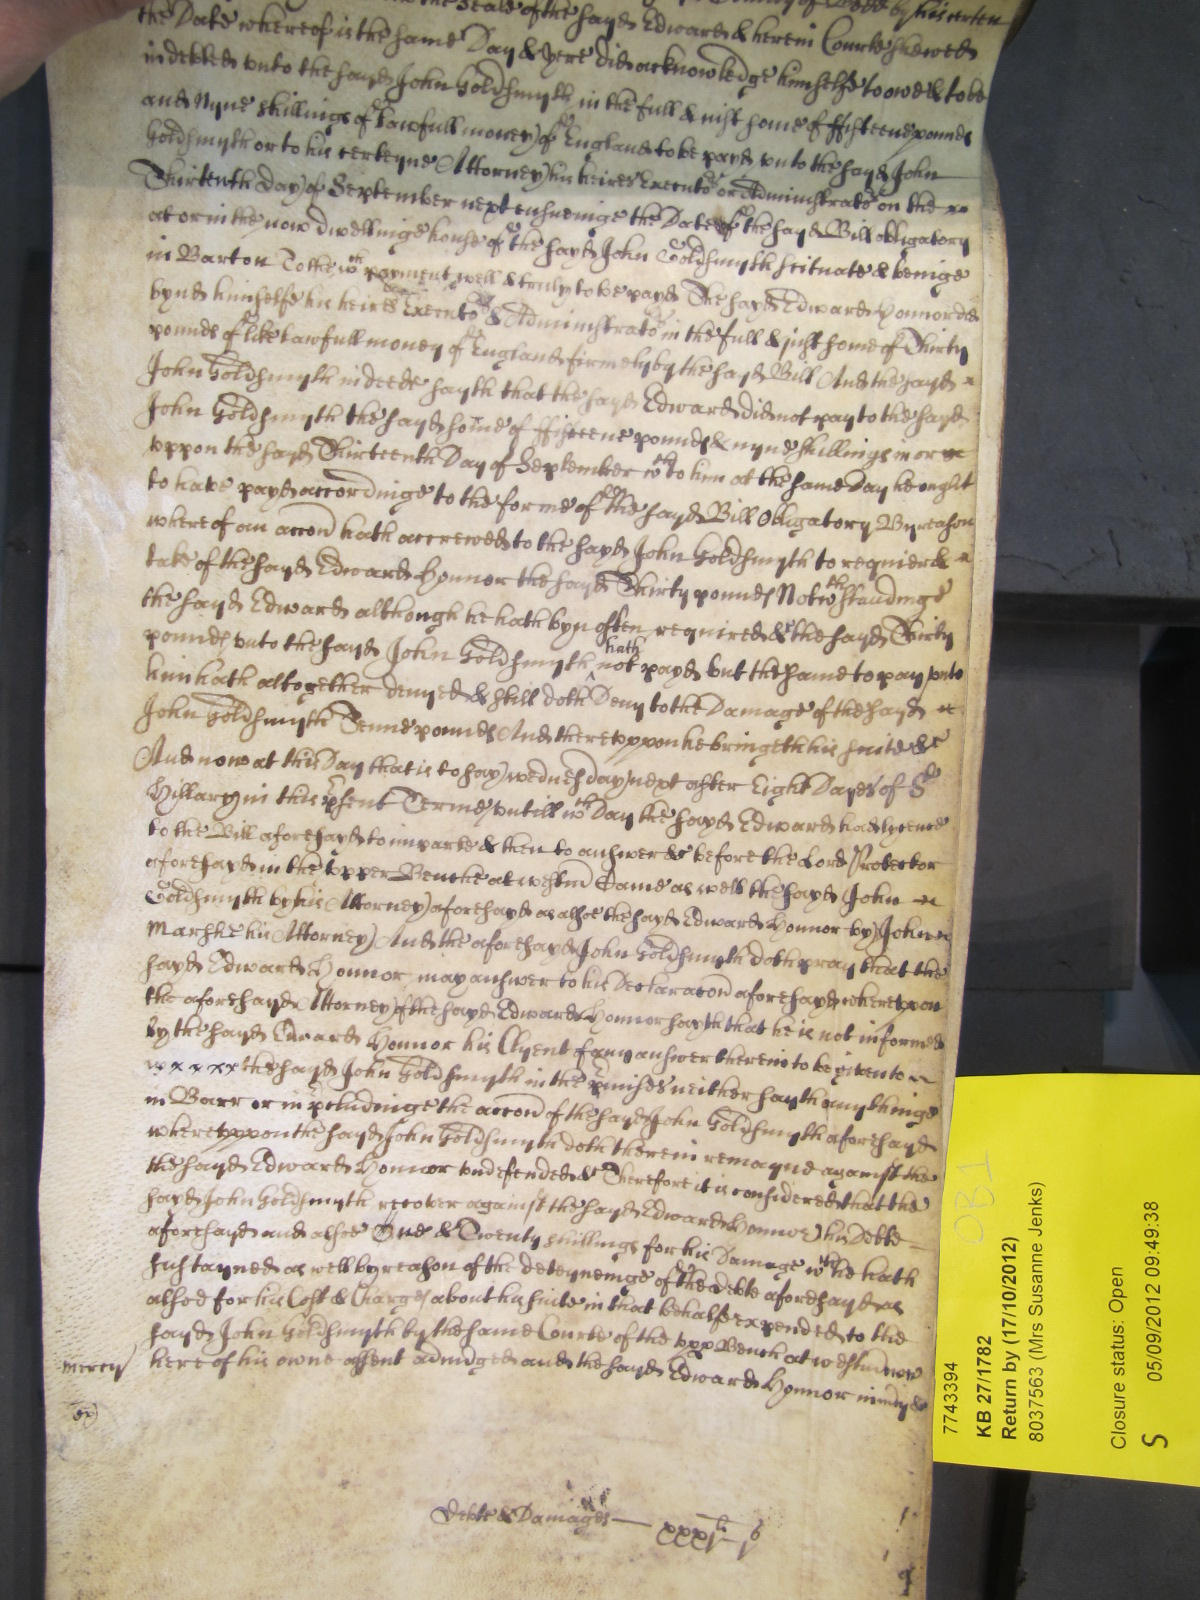 the Seale of the sayd Edward & herein Courte shewed
the Date whereof is the same Day & yere did acknowledge himselfe to owe & to be
indebted unto the sayd John Goldsmyth in the full & just some of fifteene pounds
and Nyne shillings of lawfull money of England to be payd unto the sayd John
Goldsmyth or to his certeyne Attorney his heires Executors or Administrators on the
Thirtenth Day of September next ensueinge the Date of the sayd Bill obligatory
at or in the now dwellinge house of the sayd John Goldsmyth scituate & beinge
in Barton To the wch payment well & truly to be payd The sayd Edward Honnor did
bynd himselfe his heires Executors & Administrators in the full & just some of Thirty
pounds of like lawfull money of England firmely by the sayd Bill And the sayd
John Goldsmyth in deede sayth that the sayd Edward did not pay to the sayd
John Goldsmyth the sayd some of fifteene pounds & nyne shillings
uppon the sayd Thirteenth Day of September wch to him at the same Day he ought
to have payd accordinge to the forme of the sayd Bill Obligatory By reason
whereof an accon hath accrewed to the sayd John Goldsmyth to require &
take of the sayd Edward Honnor the sayd Thirty pounds Notwthstandinge
the sayd Edward although he hath byn often required &c the sayd Thirty
pounds unto the sayd John Goldsmyth hath not payd but the same to pay unto
him hath altogether denyed & still doth Deny to the Damage of the sayd
John Goldsmyth Tenne pounds And thereuppon he bringeth his suite &c
And now at this Day that is to say wednesday next after Eight Dayes of St
Hillary in this psent Terme untill wch Day the sayd Edward had lycence
to the Bill aforesayd to imparle & then to answer &c before the Lord Protector
aforesayd in the upper Benche at westm Came as well the sayd John
Goldsmyth by his Attorney aforesayd as alsoe the sayd Edward Honnor by John
Marshe his Attorney And the aforesayd John Goldsmyth doth pray that the
sayd Edward Honnor may answer to his Declaracon aforesayd whereuppon
the aforesayd Attorney of the sayd Edward Honnor sayth that he is not informed
by the sayd Edward Honnor his Clyent of any answer therein to be given to
the sayd John Goldsmyth in the pmisses neither sayth any thinge
in Barr or in pcludinge the accon of the sayd John Goldsmyth aforesayd
whereuppon the sayd John Goldsmyth doth therein remayne against the
the sayd Edward Honnor undefended &c Therefore it is considered that the
sayd John Goldsmyth recover against the sayd Edward Honnor his Debte
aforesayd and alsoe One & Twenty shillings for his Damage wch he hath
sustayned as well by reason of the deteyneinge of the debte aforesayd as
alsoe for his Cost & Charges about his suite in that behalfe expended to the
sayd John Goldsmyth by the same Courte of the upp Bench at westm now
mercy here of his owne assent adiudged and the sayd Edward Honnor in mercy &c
Debte & Damages — xxxjl js
OB1
7743394
KB 27/1782
Return by (17/10/2012)
8037563 (Mrs Susanne Jenks)
Closure status: Open
05/09/2012 09:49:38
S